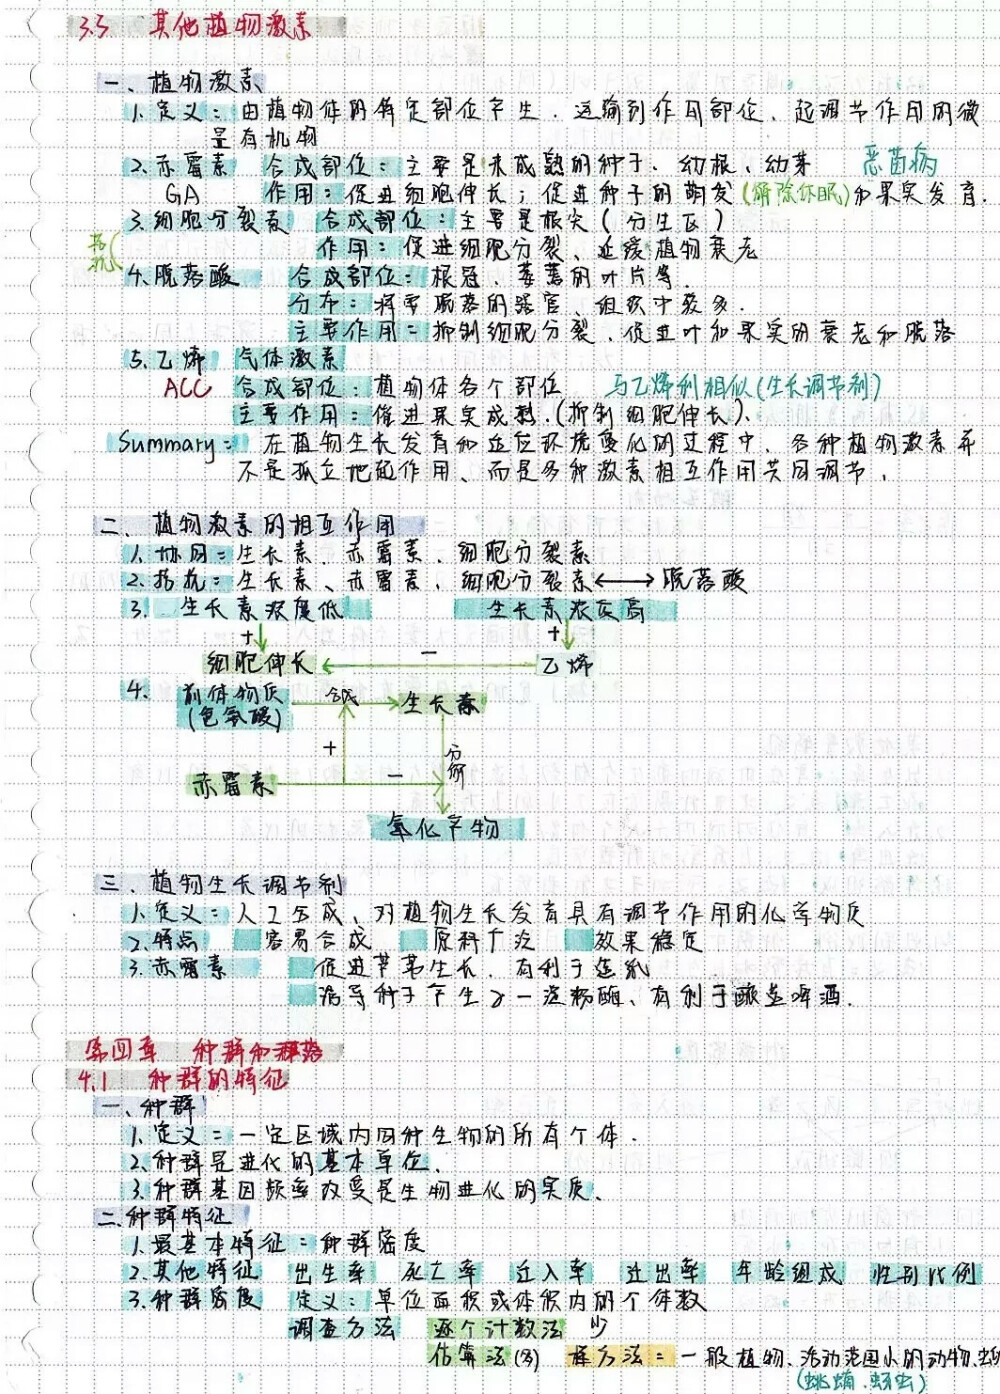 3.3 其他植物激素
一、植物激素
1.定义：由植物体的特定部位产生、运输到作用部位、起调节作用的微
量有机物
2.赤霉素 合成部位：主要是未成熟的种子、幼根、幼芽 恶苗病
GA 作用：促进细胞伸长；促进种子的萌发(解除休眠)和果实发育.
3.细胞分裂素 合成部位：主要是根尖(分生区)
拮抗 作用：促进细胞分裂、延缓植物衰老
4.脱落酸 合成部位：根冠、萎蔫的叶片等.
分布：将要脱落的器官、组织中较多.
主要作用：抑制细胞分裂、促进叶和果实的衰老和脱落
5.乙烯 气体激素
ACC 合成部位：植物体各个部位 与乙烯利相似(生长调节剂)
主要作用：催进果实成熟.(抑制细胞伸长).
Summary：在植物生长发育和适应环境变化的过程中、各种植物激素并
不是孤立地起作用、而是多种激素相互作用共同调节.
二、植物激素的相互作用
1.协同：生长素、赤霉素、细胞分裂素
2.拮抗：生长素、赤霉素、细胞分裂素⟷脱落酸
3. 生长素浓度低 生长素浓度高
+ +
细胞伸长 － 乙烯
4. 前体物质 合成 生长素
(色氨酸)
+ 分解
赤霉素 －
氧化产物
三、植物生长调节剂
1.定义：人工合成、对植物生长发育具有调节作用的化学物质
2.特点 容易合成 原料广泛 效果稳定
3.赤霉素 促进芦苇生长、有利于造纸
诱导种子产生α-淀粉酶、有利于酿造啤酒.
第四章 种群和群落
4.1 种群的特征
一、种群
1.定义：一定区域内同种生物的所有个体.
2.种群是进化的基本单位.
3.种群基因频率改变是生物进化的实质.
二、种群特征
1.最基本特征：种群密度
2.其他特征 出生率 死亡率 迁入率 迁出率 年龄组成 性别比例
3.种群密度 定义：单位面积或体积内的个体数
调查方法 逐个计数法 少
估算法(多) 样方法：一般植物、活动范围小的动物、
(跳蝻、蚜虫)